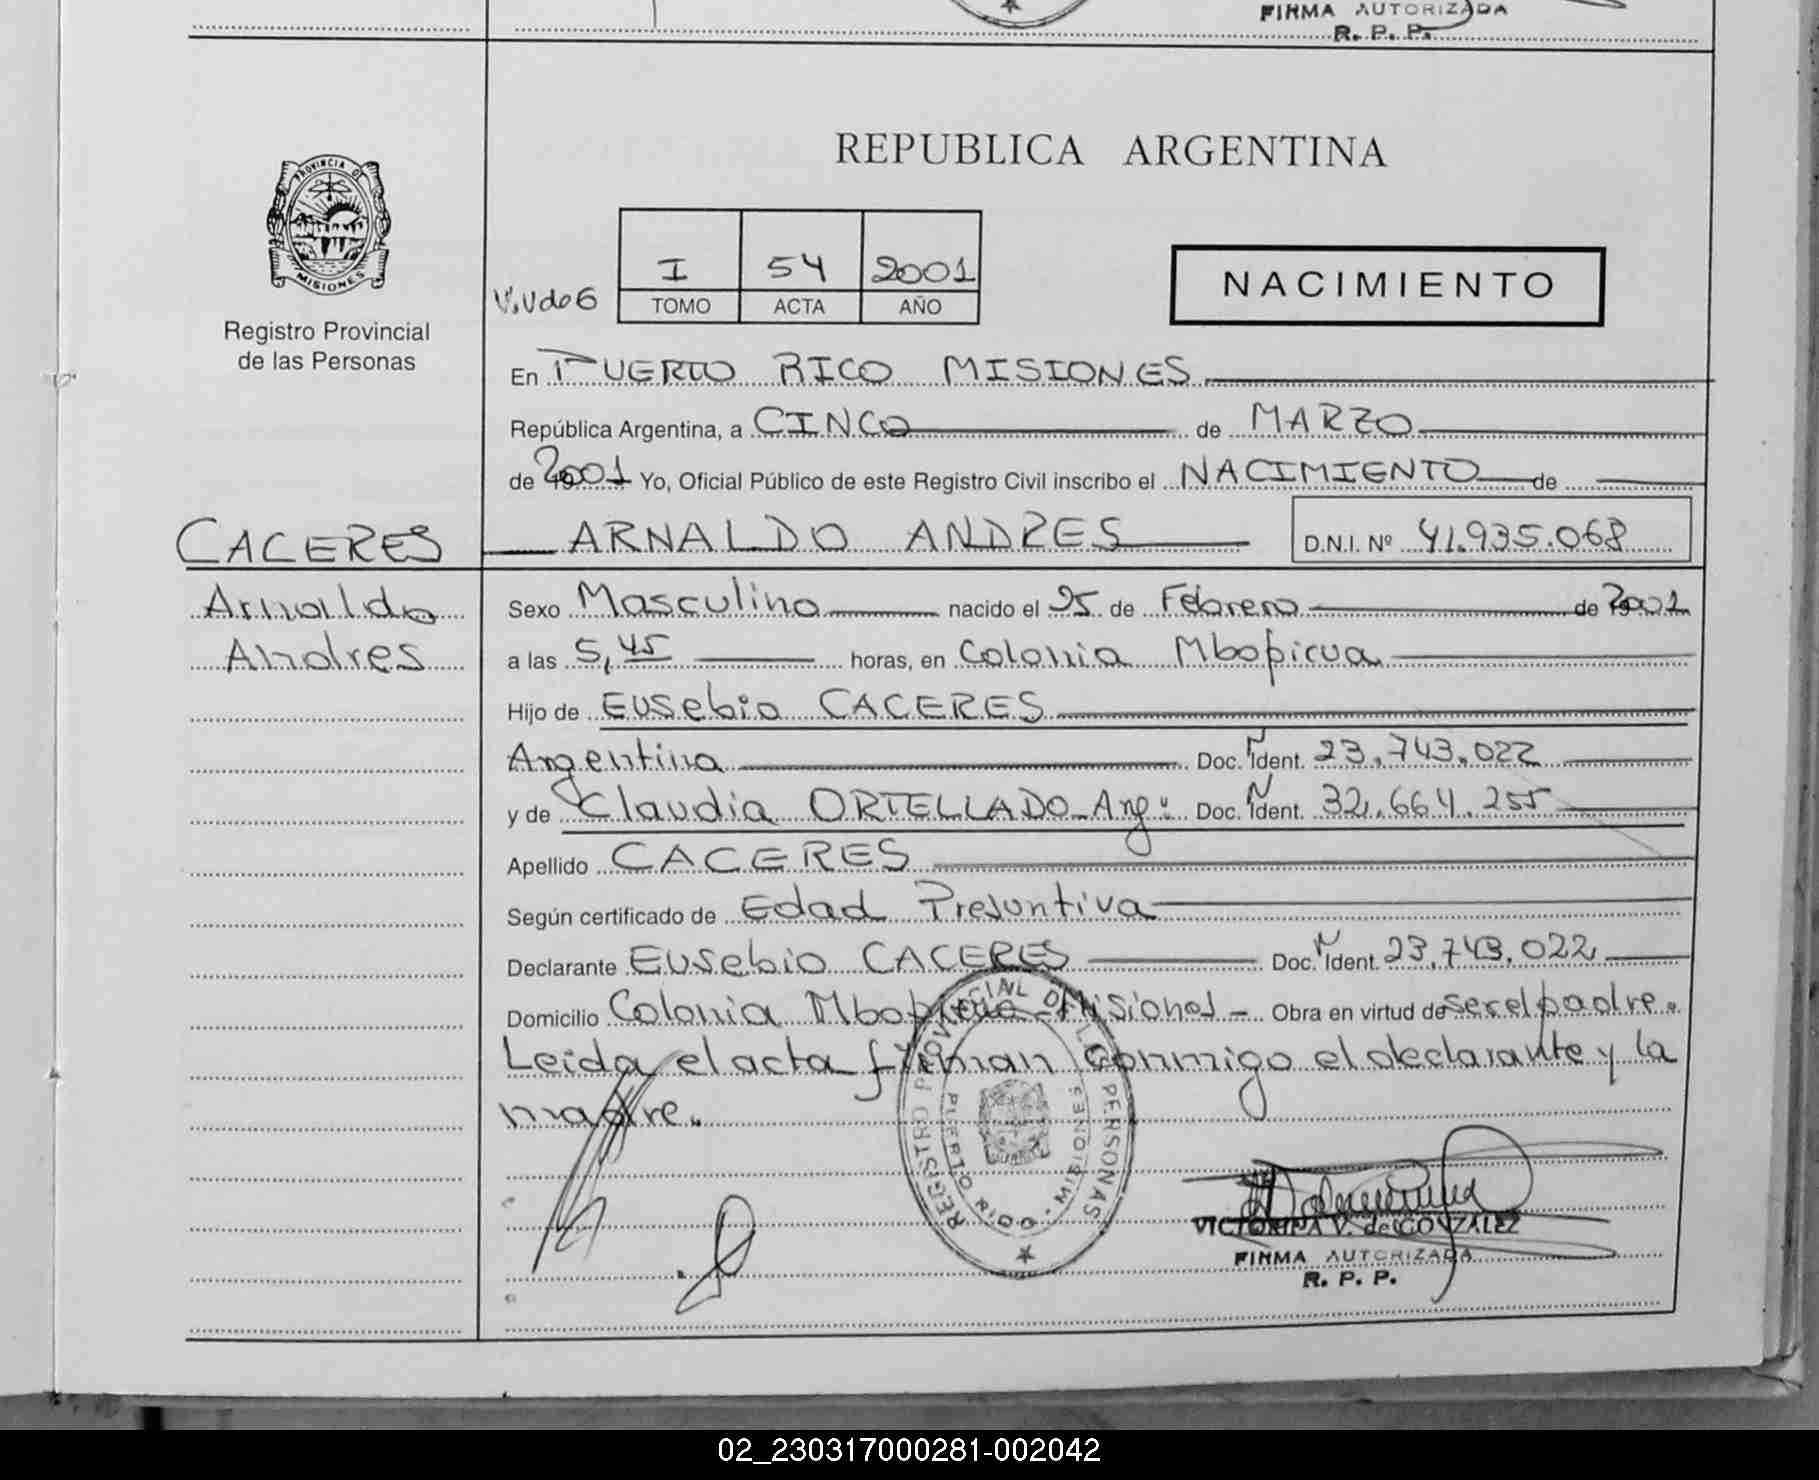 FIRMA AUTORIZADA
R. P. P.
PROVINCIA DE
MISIONES
Registro Provincial
de las Personas
REPUBLICA ARGENTINA
I 54 2001
TOMO ACTA AÑO
NACIMIENTO
En PUERTO RICO MISIONES
República Argentina, a CINCO de MARZO
de 2001 Yo, Oficial Público de este Registro Civil inscribo el NACIMIENTO de
CACERES
Arnaldo
Andres
ARNALDO ANDRES D.N.I. Nº 41.935.068
Sexo Masculino nacido el 25 de Febrero de 2001
a las 5,45 horas, en Colonia Mbopicua
Hijo de Eusebio CACERES
Argentina Doc. Ident. 23.743.022
y de Claudia ORTELLADO-Arg: Doc. Ident. 32.664.255
Apellido CACERES
Según certificado de Edad Presuntiva
Declarante Eusebio CACERES Doc. Ident. 23.743.022
Domicilio Colonia Mbopicua-Misiones- Obra en virtud de ser el padre.
Leida el acta firman conmigo el declarante y la
madre.
REGISTRO PROVINCIAL DE LAS PERSONAS
PUERTO RICO - MISIONES
VICTORINA V. de GONZALEZ
FIRMA AUTORIZADA
R. P. P.
02_230317000281-002042